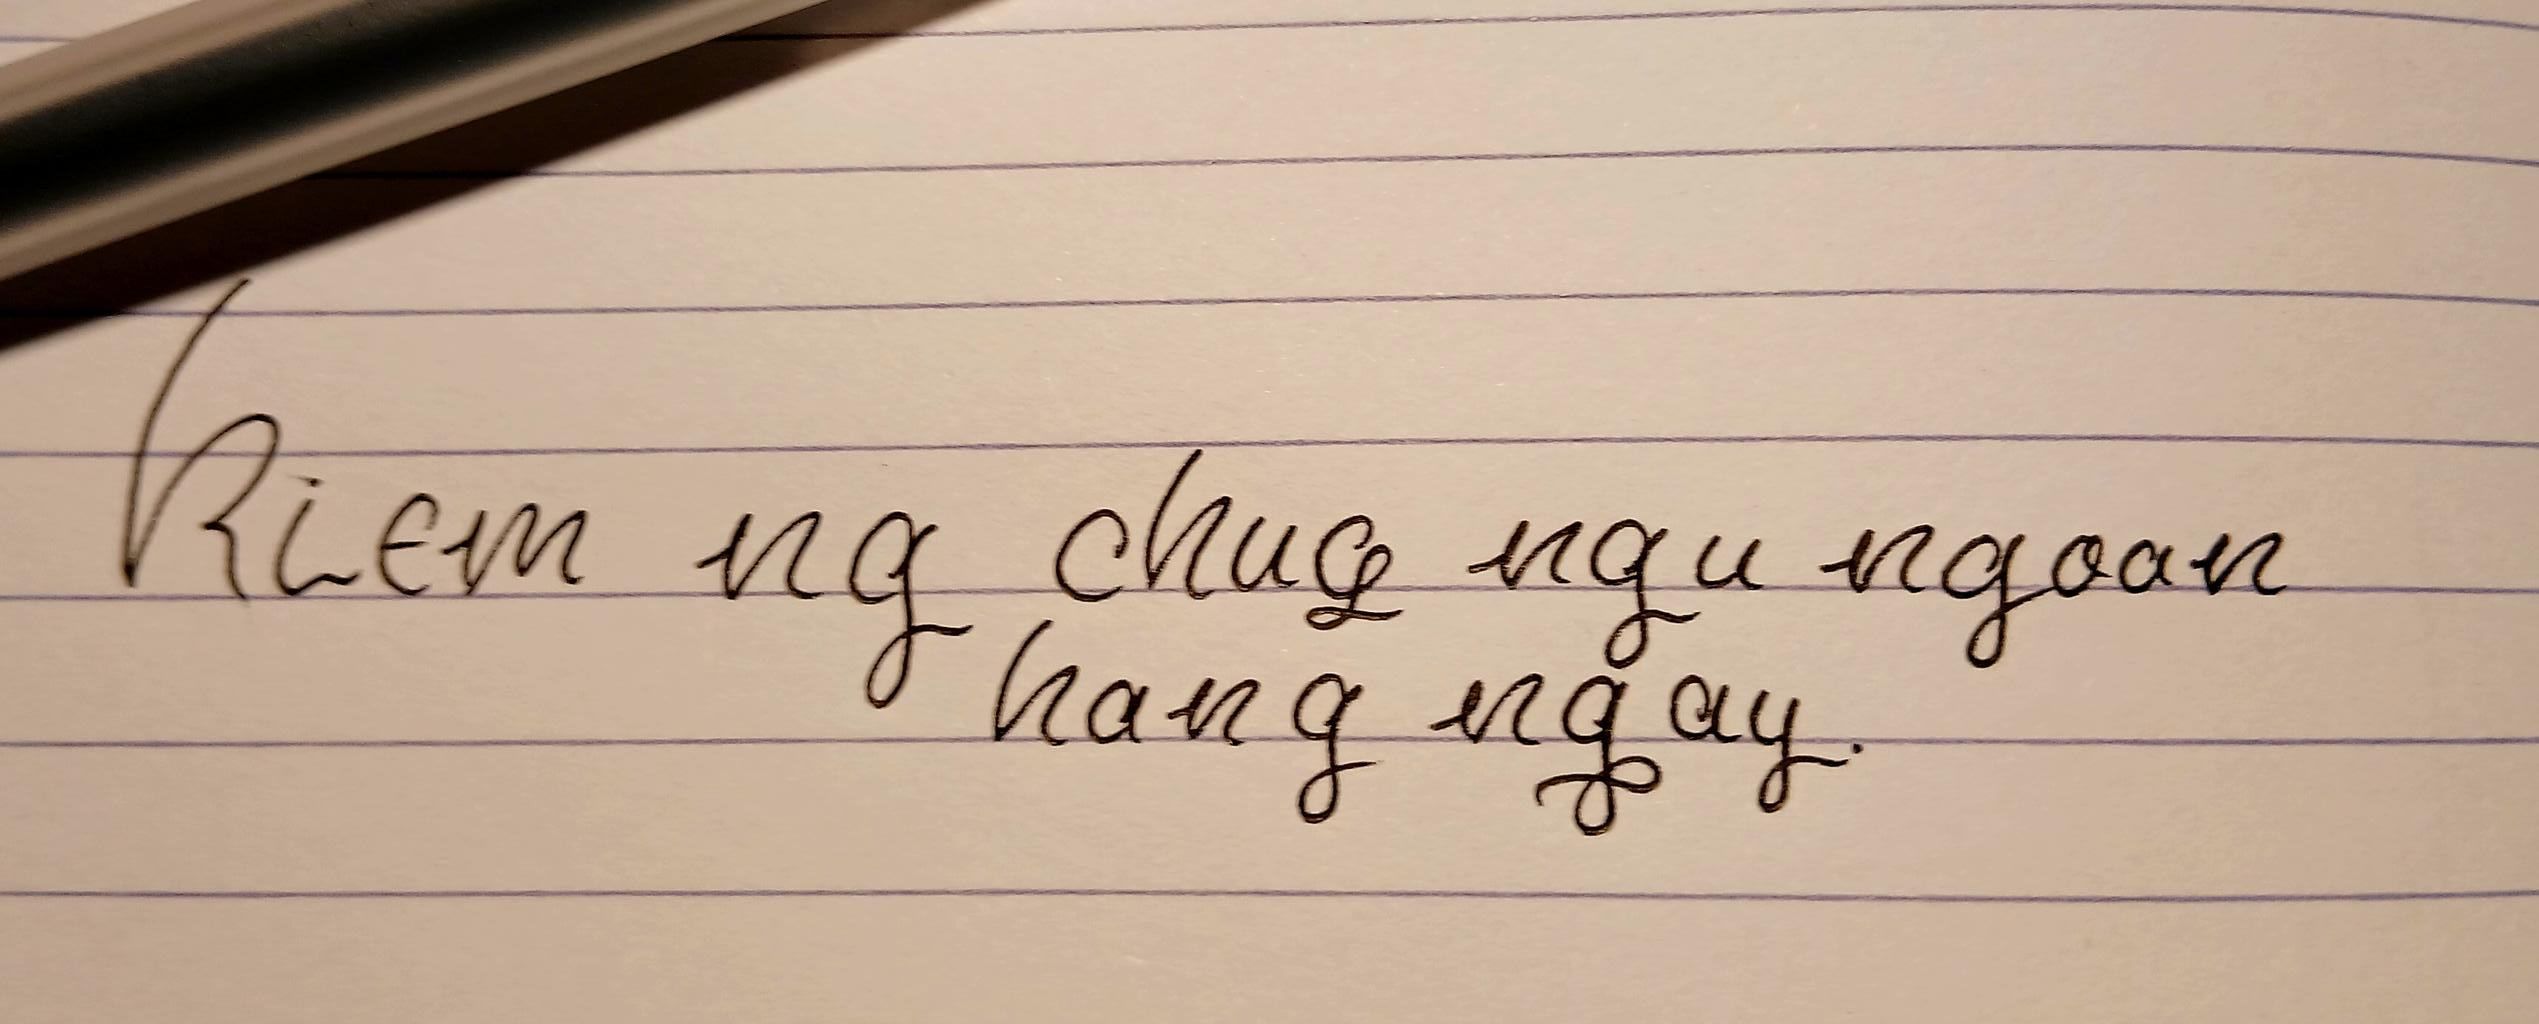 Kiem ng chug ngu ngoan
hang ngay.